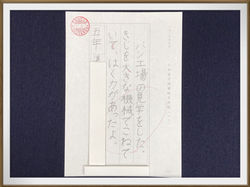 パン工場の見学をした。
きじを大きな機械でこねて
いて、はく力があったよ。
五年